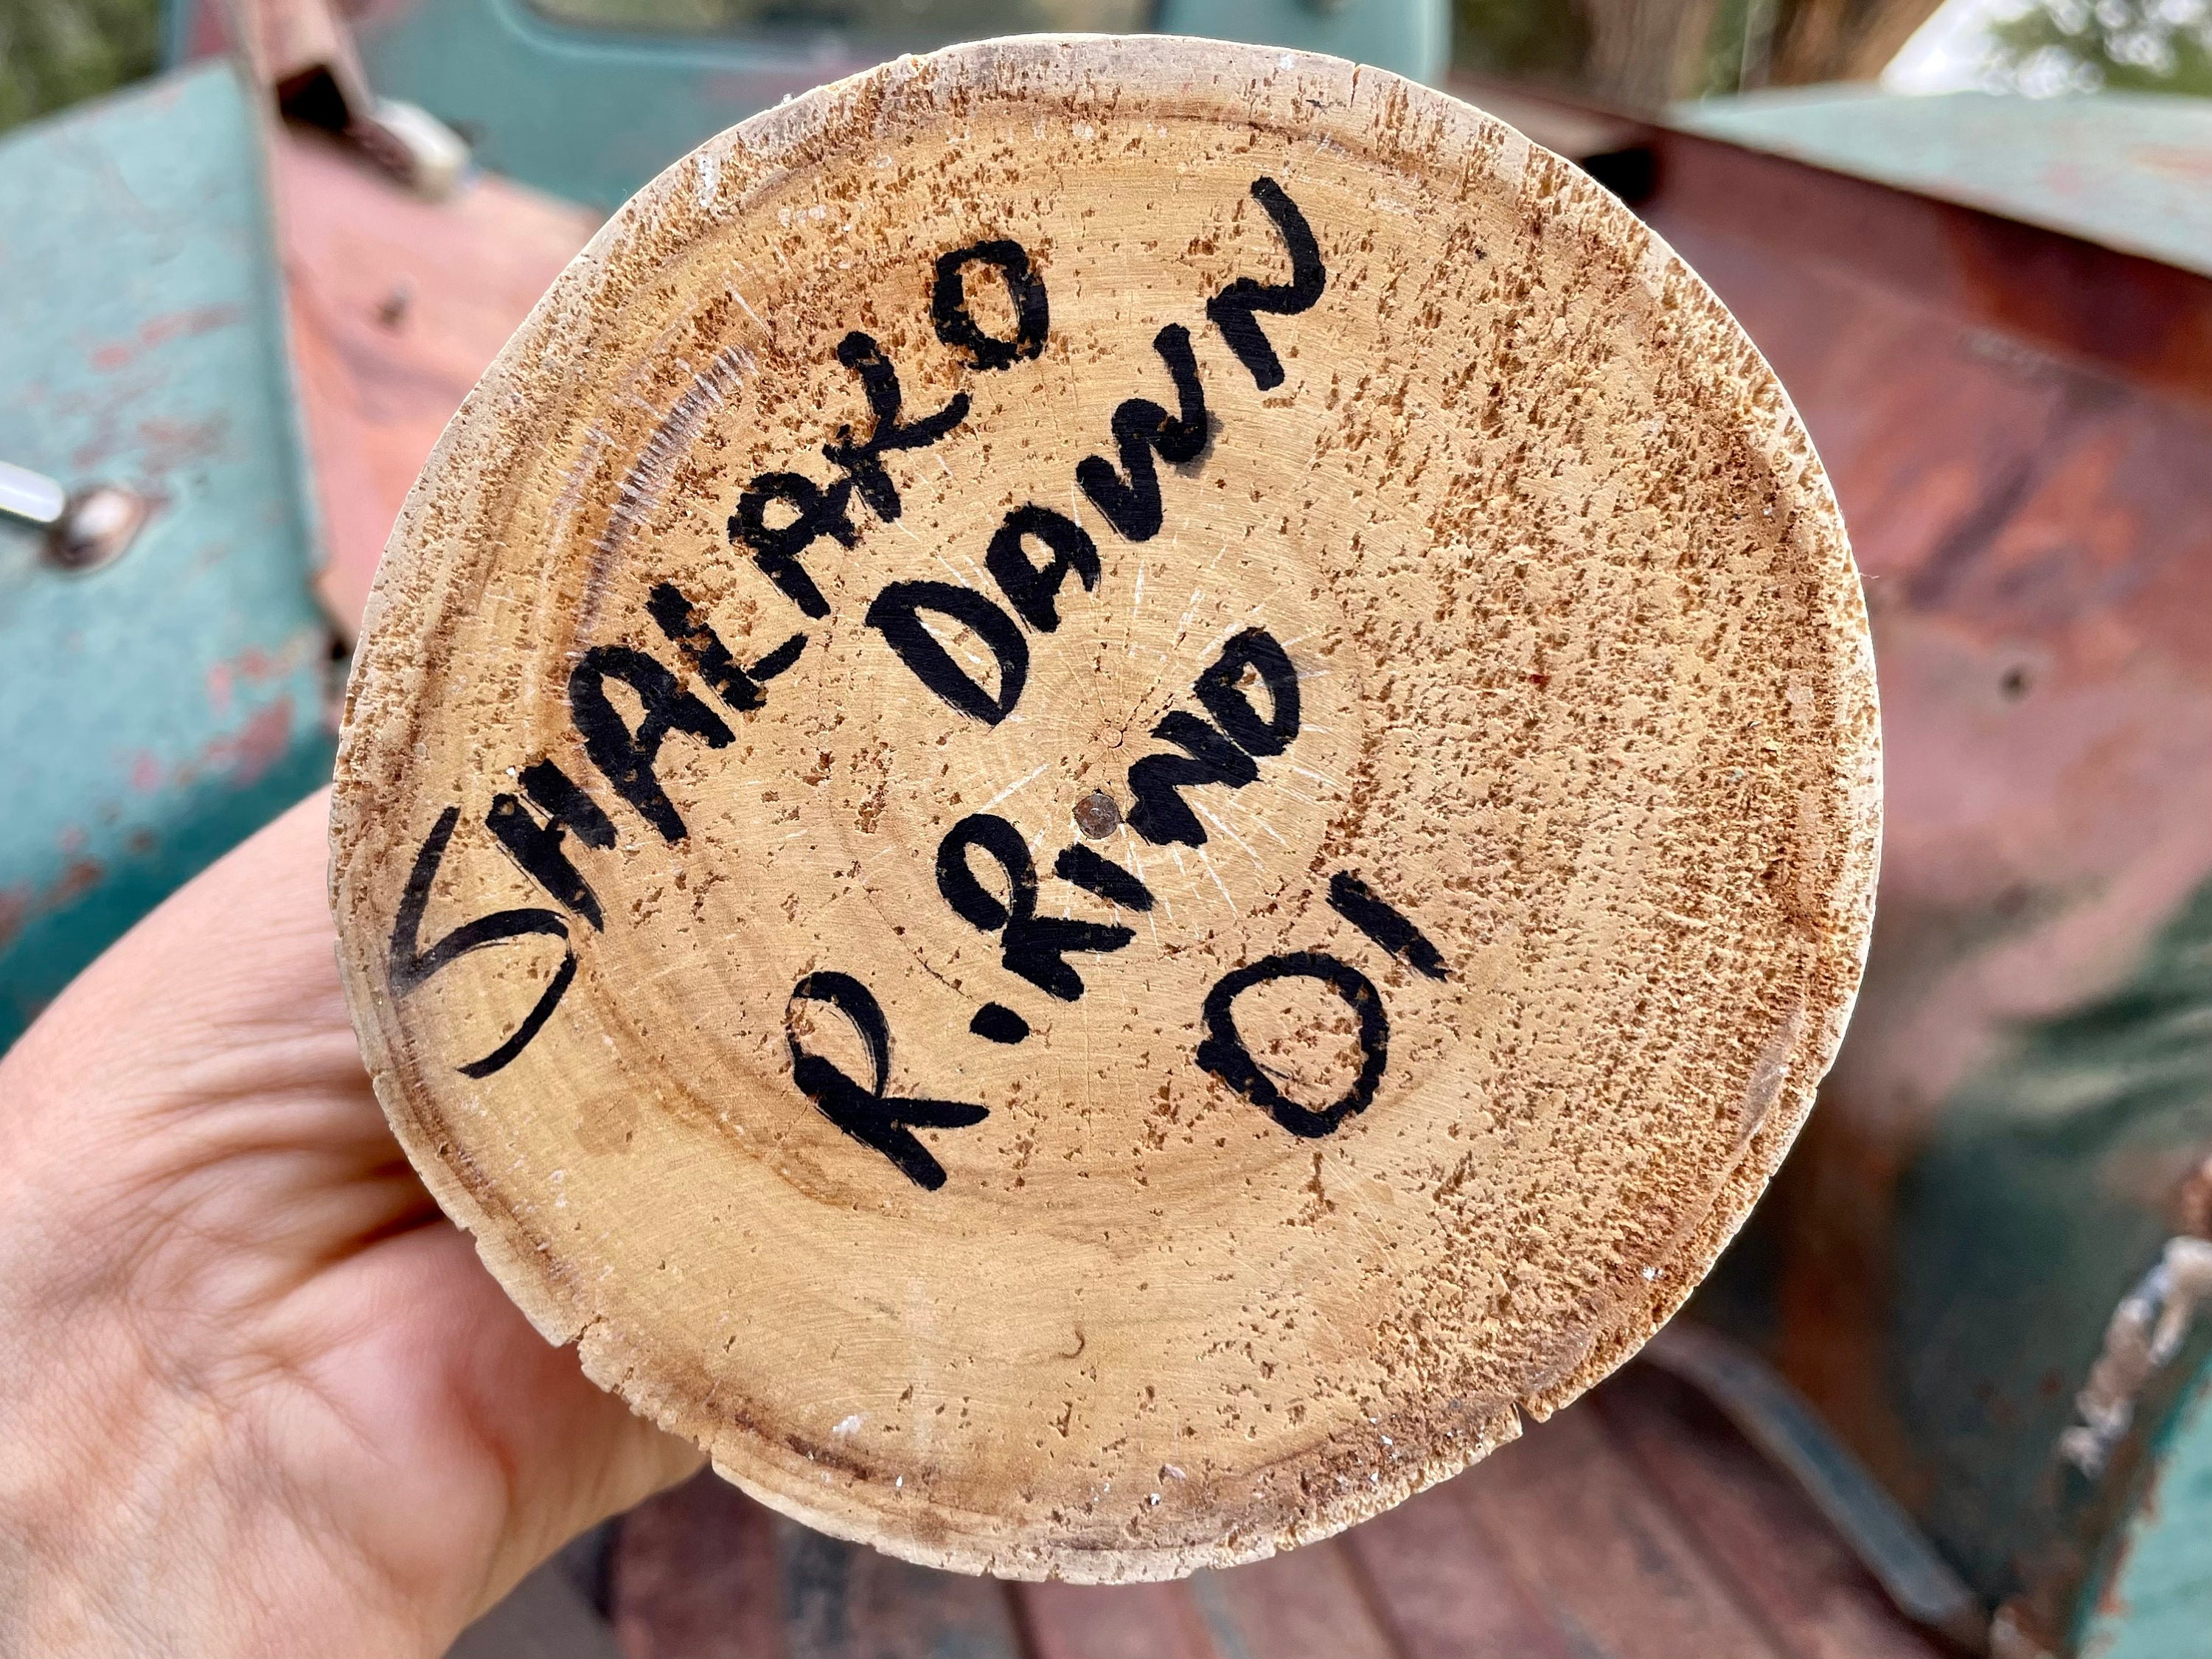 SHALAKO
DAWN
R. RINO
01